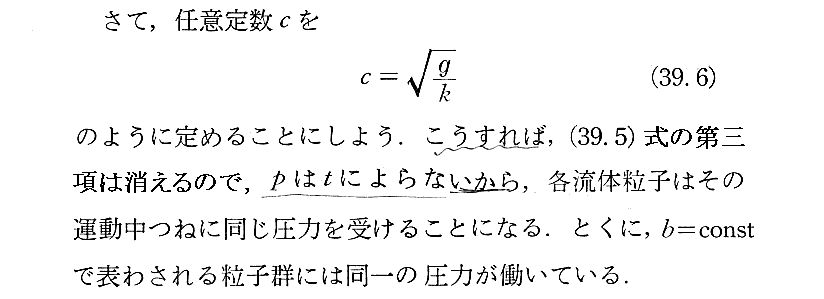 さて，任意定数 c を
c = √(g/k) (39.6)
のように定めることにしよう．こうすれば，(39.5) 式の第三
項は消えるので，p は t によらないから，各流体粒子はその
運動中つねに同じ圧力を受けることになる．とくに，b=const
で表わされる粒子群には同一の圧力が働いている．